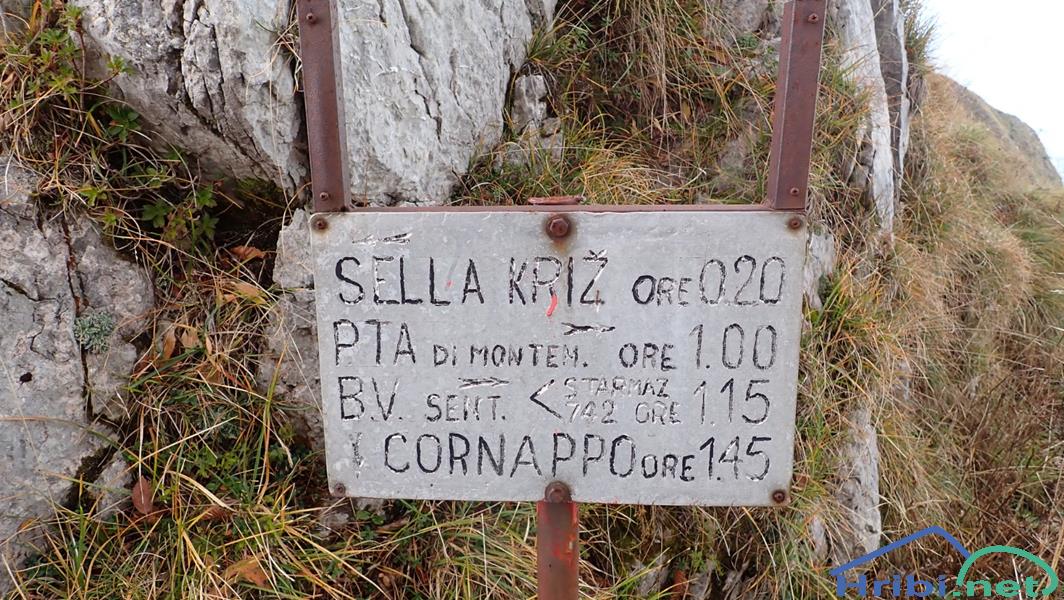 SELLA KRIŽ ORE 0.20
PTA DI MONTEM. ORE 1.00
B.V. SENT. < STARMAZ
742 ORE 1.15
CORNAPPO ORE 1.45
Hribi.net